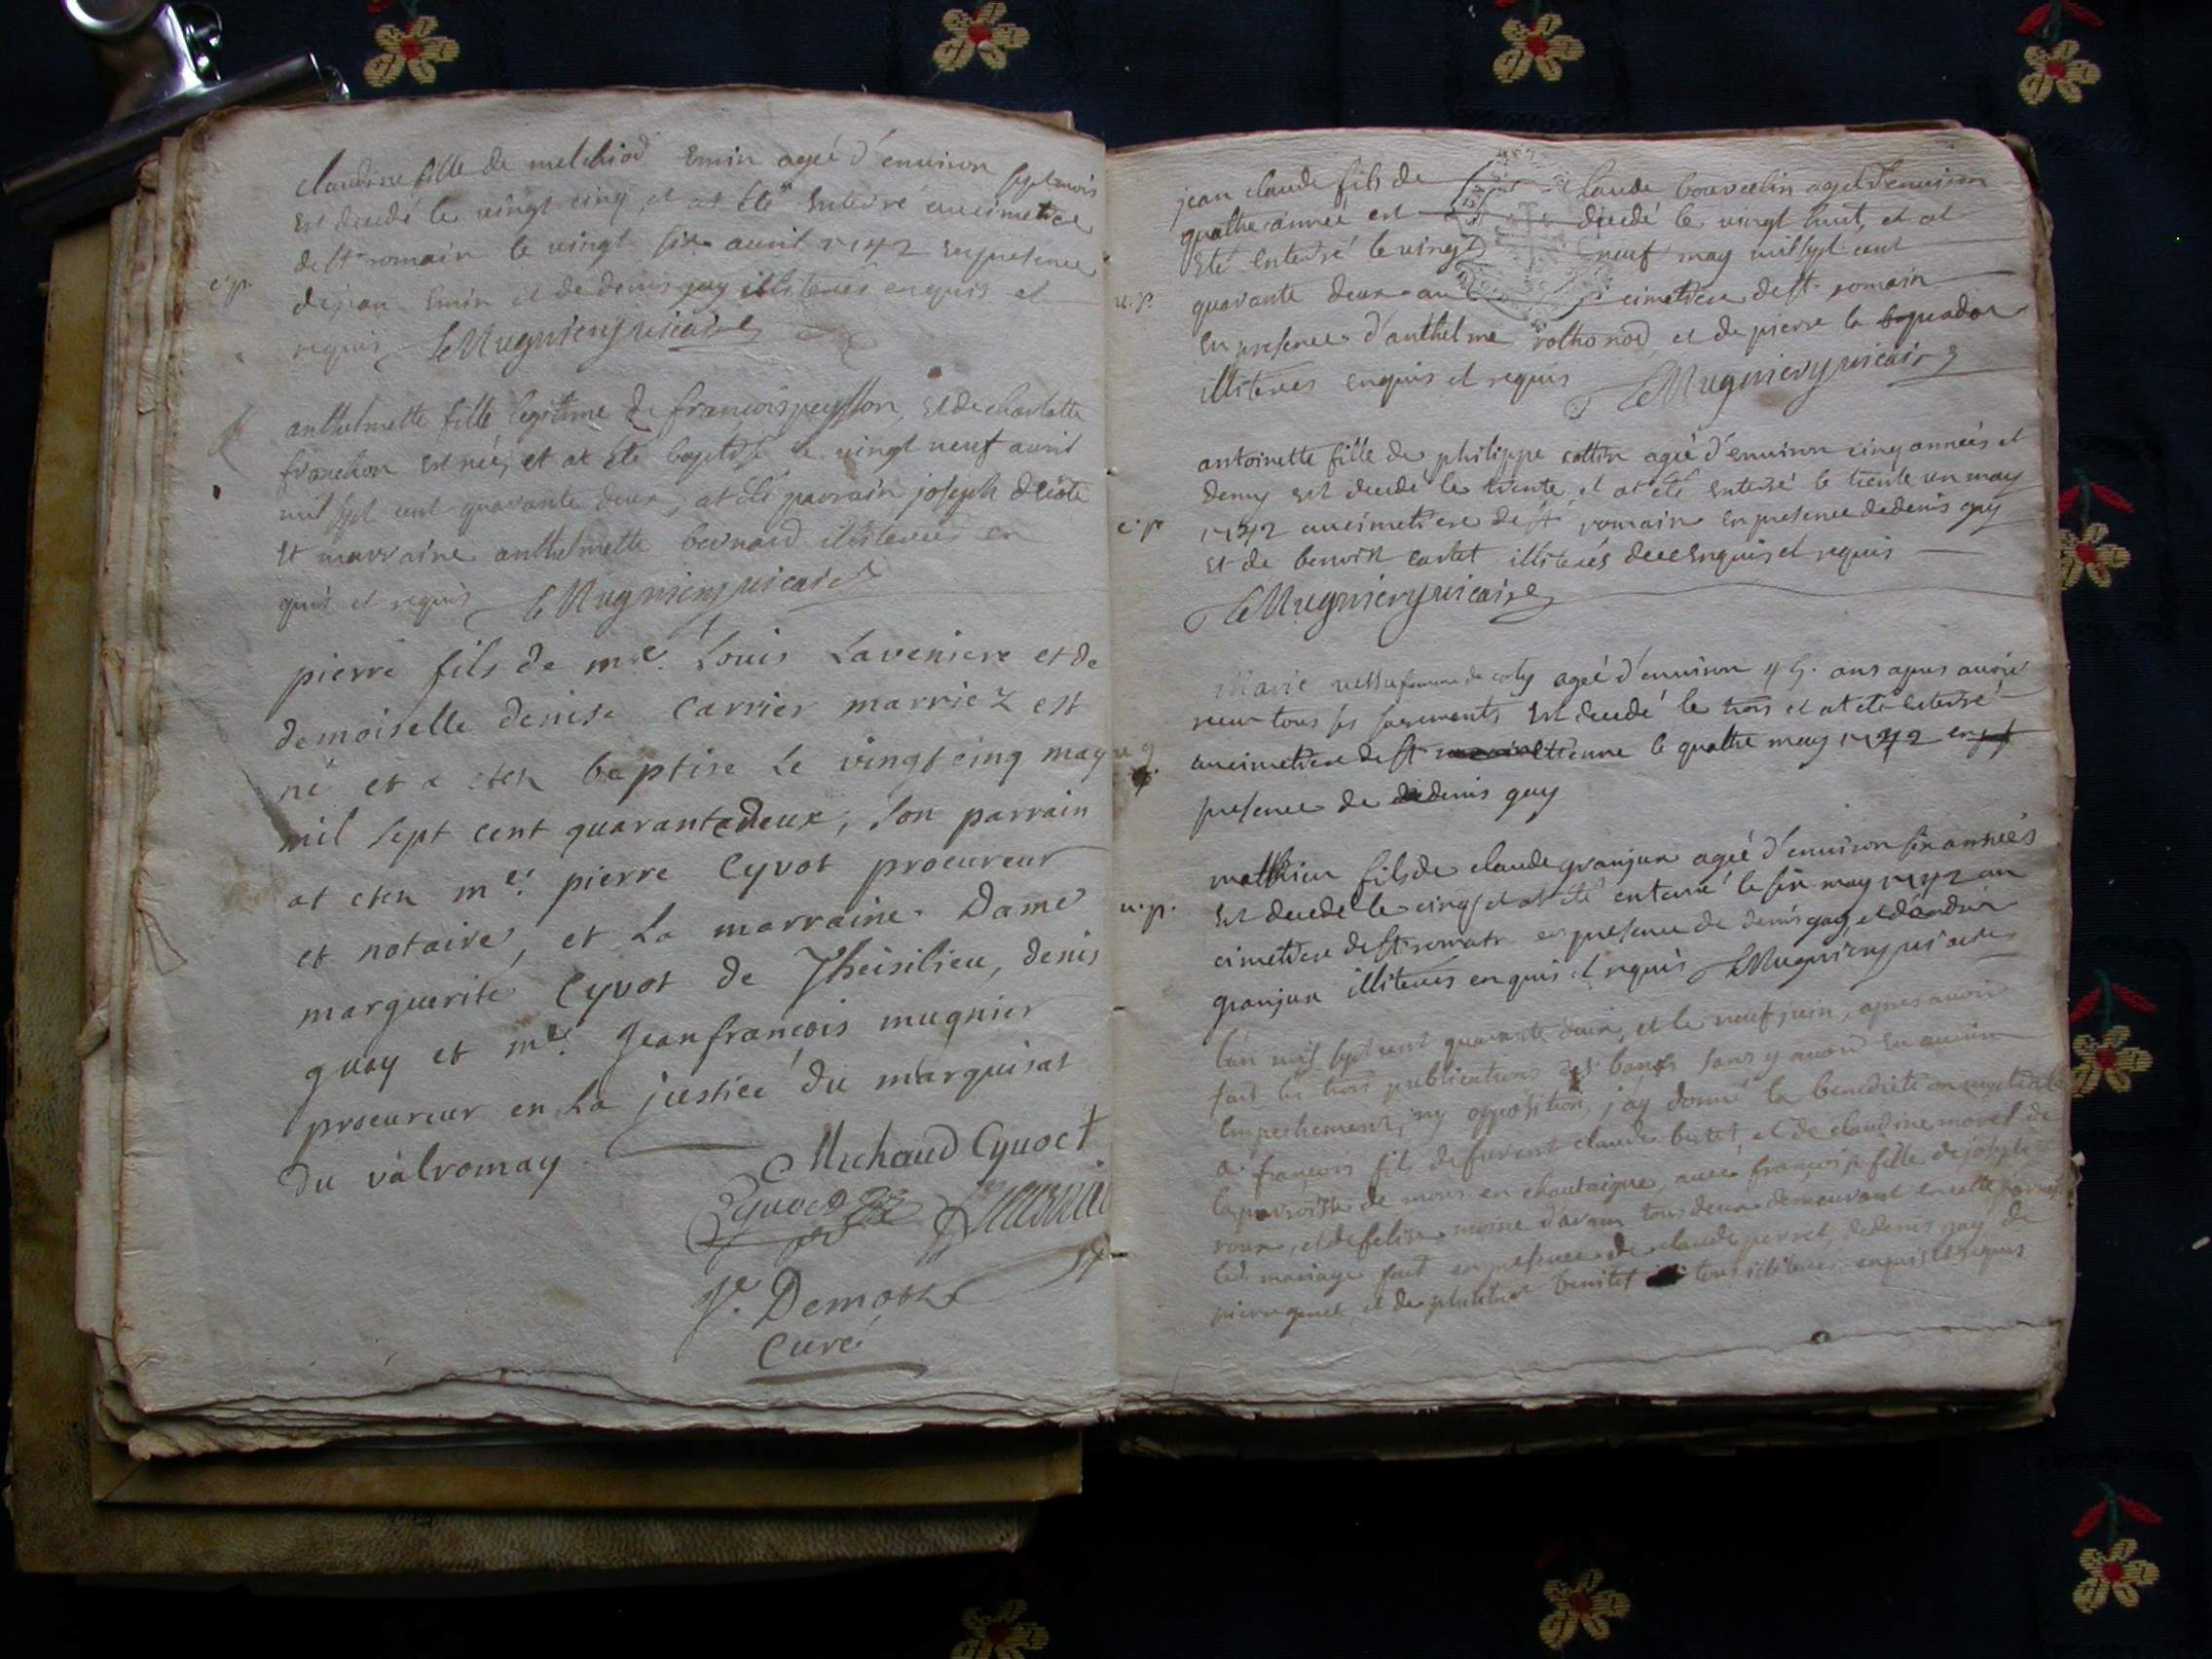 claudine fille de melchiod Emin ageé d'environ sept mois
Est decedé le vingt cinq, et at été Enterré au cimetiere
de st romain le vingt six avril 1742 En presence
c.p.
de jean Emin et de denis guy illiterés enquis et
requis Le Mugnier vicaire
anthelmette fille legitime de francois peysson, Et de charlotte
franchon Est neé, et at été baptisé le vingt neuf avril
mil sept cent quarante deux, at été parrain joseph
Et marraine anthelmette bernard illiterés en
quis et requis Le Mugnier vicaire
pierre fils de me. Louis Laveniere et de
demoiselle denise Carrier marriez est
né et a eten baptise Le vingt cinq may
mil sept cent quarantedeux, son parrain
at eten me. pierre Cyvot procureur
et notaire, et La marraine Dame
marguerite Cyvot de Theisilieu, denis
guay et me. Jeanfrancois mugnier
procureur en La justice du marquisat
du valromay
Michaud Cyvoct
Cyvoct
Demoth
Curé
jean claude fils de claude bouvelin ageé d'environ
quathe anneé est decedé le vingt huit, et at
Eté Enterré le vingt neuf may mil sept cent
u.p.
quarante deux au cimetiere de st romain
En presence d'anthelme rothonod et de pierre la
illiterés enquis et requis Le Mugnier vicaire
antoinette fille de philippe cottin ageé d'environ cinq anneés et
demy Est decedé le trente et at eté Enterré le trente un may
c.p
1742 au cimetiere de st romain En presence de denis guy
Et de benoist cartet illiterés Enquis et requis
Le Mugnier vicaire
Marie femme de ageé d'environ 45. ans apres avoir
receu tous ses sacrements Est decedé le trois et at eté enterré
au cimetiere de st Etienne le quathe may 1742 en
presence de denis guy
mathieu fils de claude granjux ageé d'environ six anneés
u.p.
Est decedé le cinq et at eté enterré le six may 1742 au
cimetiere de st romain en presence de denis guy, et d'andré
granjux illiterés enquis et requis Le Mugnier vicaire
l'an mil sept cent quarante deux, et le neuf juin, apres avoir
fait les trois publications des bancs sans y avoir Eu aucun
Empechement, ny opposition j'ay donné la benediction nuptiale
a françois fils de furent claude bertet, et de claudine moret de
la parroisse de mons en chautaigne, avec françoise fille de joseph
roux, et de felise moine d'avaux tous deux demeurant en cette parroisse
led. mariage fait en presence de claude perret, de denis guy de
pierre genet, et de benitet tous illiterés enquis et requis